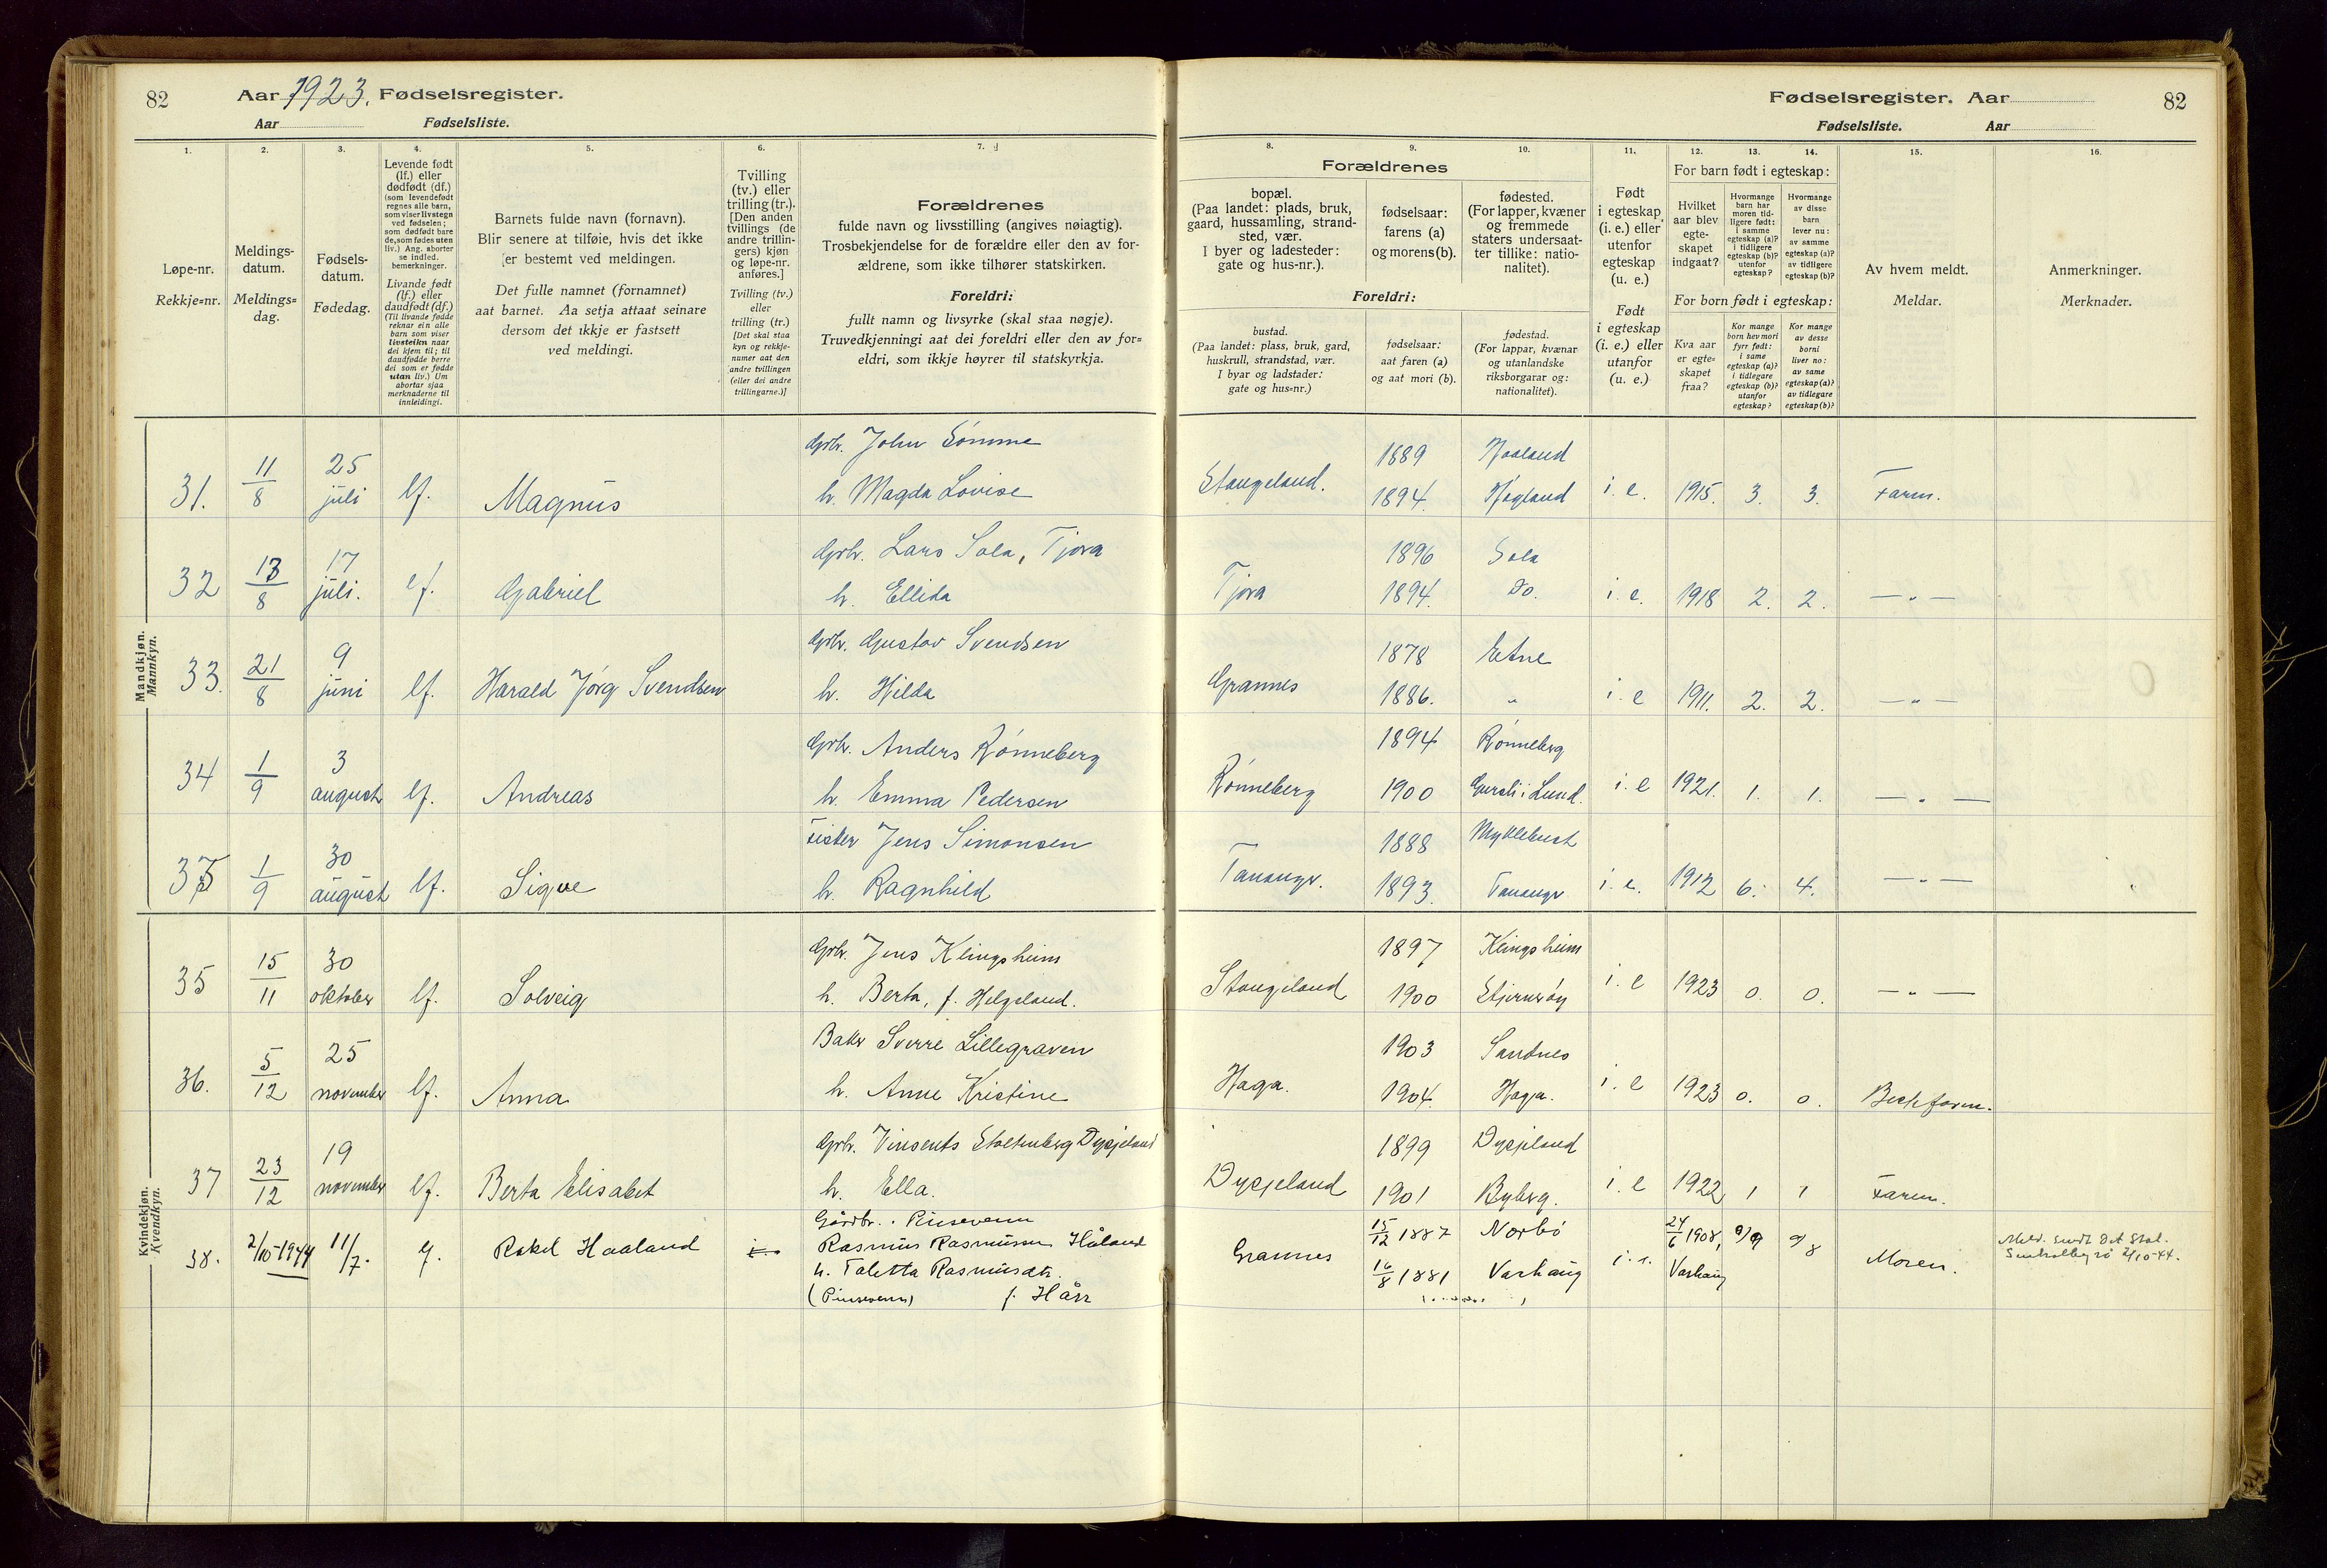 82
Aar 1923. Fødselsregister.
Aar Fødselsliste.
Fødselsregister. Aar
82
Fødselsliste. Aar
1.
Løpe-nr.
Rekkje=nr.
2.
Meldings-
datum.
Meldings=
dag.
3.
Fødsels-
datum.
Fødedag.
4.
Levende født
(lf.) eller
dødfødt (df.)
(som levendefødt
regnes alle barn,
som viser livstegn
ved fødselen;
som dødfødt bare
de, som fødes uten
liv.) Ang. aborter
se indled.
bemerkninger.
Livande født
(lf.) eller
daudfødt (df.)
(Til livande fødde
reknar ein alle
born som viser
livsteikn naar
dei kjem til; til
daudfødde berre
dei som er fødde
utan liv.) Um
abortar sjaa
merknaderne til
innleidingi.
5.
Barnets fulde navn (fornavn).
Blir senere at tilføie, hvis det ikke
er bestemt ved meldingen.
Det fulle namnet (fornamnet)
aat barnet. Aa setja attaat seinare
dersom det ikkje er fastsett
ved meldingi.
6.
Tvilling
(tv.) eller
trilling (tr.).
[Den anden
tvillings (de
andre trillin-
gers) kjøn
og løpe-nr.
anføres.]
Tvilling (tv.)
eller
trilling (tr.)
[Det skal staa
kyn og rekkje-
numer aat den
andre tvillingen
(eller dei andre
trillingarne.)]
7.
Forældrenes
fulde navn og livsstilling (angives nøiagtig).
Trosbekjendelse for de forældre eller den av for-
ældrene, som ikke tilhører statskirken.
Foreldri:
fullt namn og livsyrke (skal staa nøgje).
Truvedkjenningi aat dei foreldri eller den av for=
eldri, som ikkje høyrer til statskyrkja.
8.
9.
10.
Forældrenes
bopæl.
(Paa landet: plads, bruk,
gaard, hussamling, strand-
sted, vær.
I byer og ladesteder:
gate og hus-nr.).
fødselsaar:
farens (a)
og morens (b).
fødested.
(For lapper, kvæner
og fremmede
staters undersaat-
ter tillike: natio-
nalitet).
Foreldri:
bustad.
(Paa landet: plass, bruk, gard,
huskrull, strandstad, vær.
I byar og ladstader:
gate og hus-nr.)
fødselsaar:
aat faren (a)
og aat mori (b).
fødestad.
(For lappar, kvænar
og utanlandske
riksborgarar og:
nationalitet).
11.
Født
i egteskap
(i. e.) eller
utenfor
egteskap
(u. e.)
Født
i egteskap
(i. e.) eller
utanfor
(u. e.)
12.
13.
14.
For barn født i egteskap:
Hvilket
aar blev
egte-
skapet
indgaat?
Hvormange
barn har
moren tid-
ligere født:
i samme
egteskap (a)?
i tidligere
egteskap (b)?
utenfor
egteskap?
Hvormange
av disse
barn
lever nu:
av samme
egteskap (a)?
av tidligere
egteskap (b)?
For born født i egteskap:
Kva aar
er egte=
skapet
fraa?
Kor mange
born hev mori
fyrr født:
i same
egteskap (a)?
i tidlegare
egteskap (b)?
utanfor
egteskap?
Kor mange
av desse
borni
liver no:
av same
egteskap (a)?
av tidlegare
egteskap (b)?
15.
Av hvem meldt.
Meldar.
16.
Anmerkninger.
Merknader.
Mandkjøn.
Mannkyn.
31. 11/8 25 juli lf. Magnus Gbr. John Sømme 1889
h. Magda Lovise Stangeland. 1894. i. e. 1915. 3. 3. Faren.
32 13/8 17 juli. lf. Gabriel Gbr. Lars Sola, Tjora 1896 Sola
h. Ellida Tjora 1894. Do. i. e. 1918 2. 2. — " —
33. 21/8 9 juni lf. Harald Jørg Svendsen Gbr. Gustav Svendsen 1878 Etne
h. Hilda Grannes 1886. " i. e 1911. 2. 2. — " —
34 1/9 3 august lf. Andreas Gbr. Anders Rønneberg 1894 Rønneberg
h. Emma Pedersen Rønneberg 1900 i Lund. i. e 1921. 1. 1. — " —
1/9 30 august lf. Sigve Fisker Jens Simonsen 1888 Myklebust
h. Ragnhild Tananger. 1893. Tananger i. e. 1912 6. 4. — " —
Kvindekjøn.
Kvendkyn.
35 15/11 30 oktober lf. Solveig Gbr. Jens Klingsheim 1897 Klingsheim
h. Berta, f. Helgeland. Stangeland 1900 Stjernerøy i. e 1923 0. 0. — " —
36. 5/12 25 november lf. Anna Baker Sverre Lillegraven 1903 Sandnes
h. Anne Kristine Haga. 1904. Haga. i. e 1923 0. 0.
37 23/12 19 november lf. Berta Elisabet Gbr. Vinsents Stoltenberg Dysjeland 1899 Dysjeland
h. Ella. Dysjeland 1901 Byberg. i. e 1922 1 1 Faren.
38. 2/10-1944 11/7. lf. Rakel Haaland Gårdbr. Pinsevenn
Rasmus Rasmussen Håland Grannes 15/12 1887 Norbø i. e. 24/6 1908, 9 8 Moren. Meld. sendt Det Stat.
h. Taletta Rasmusdtr. 16/8 1881 Varhaug Varhaug Sentralbyrå 2/10-44.
(Pinsevenn) f. Hårr